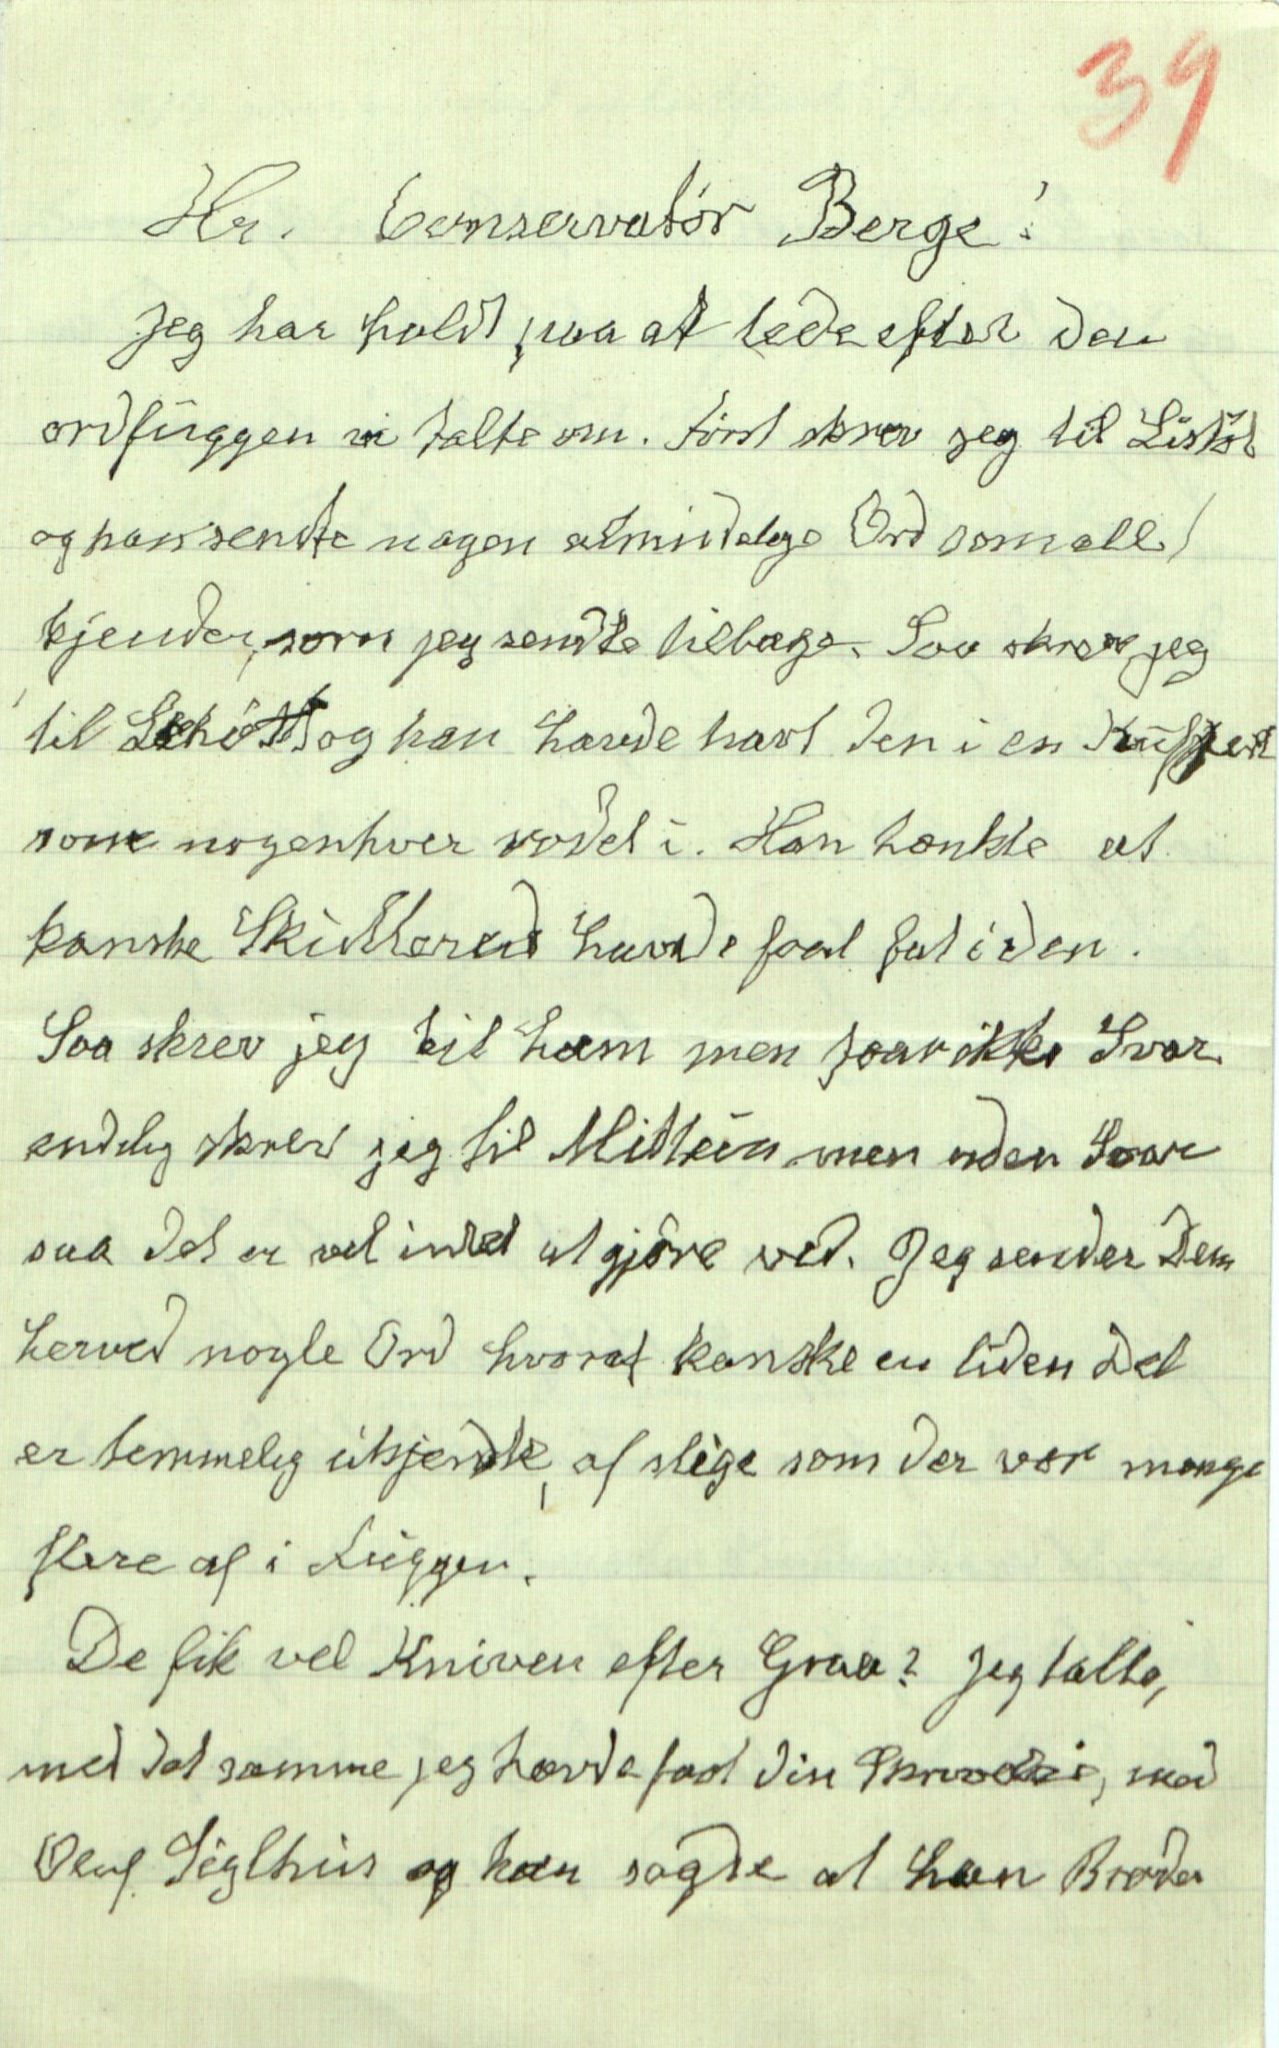 39
Hr. Conservatør Berge!
Jeg har holdt paa at lede efter den
ordfuggen vi talte om. Først skrev jeg til Listøl
og han sendte nogen almindelige Ord som alle
kjender, som jeg sendte tilbage. Saa skrev jeg
til og han havde havt den i en Kuffert
som nogenhver rodet i. Han tænkte at
kanske havde faat fat i den.
Saa skrev jeg til ham men faar ikke Svar
endelig skrev jeg til men uden Svar
saa det er vel intet at gjøre ved. Jeg sender Dem
herved nogle Ord hvoraf kanske en liden Del
er temmelig ukjendte, af slige som der var mange
flere af i Fuggen.
De fik vel Kniven efter Graa? Jeg talte,
med det samme jeg havde faat din med
Oluf Siglhus og han sagde at han Broder